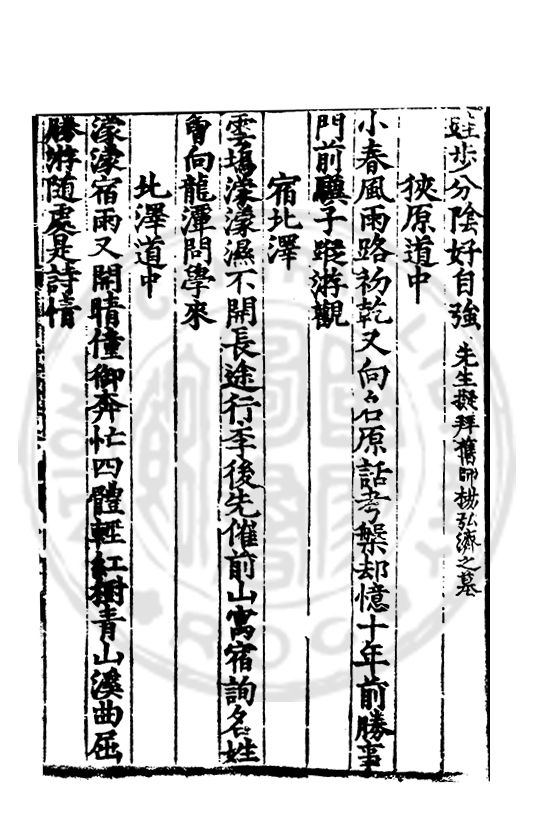 跬步分陰好自強 先生擬拜舊師楊弘濟之墓
狹原道中
小春風雨路初乾又向原話考槃却憶十年前勝事
門前驥子蹤游觀
宿北澤
雲塢濛濛濕不開長途行李後先催前山寓宿詢名姓
曾向龍潭問學來
北澤道中
濛濛宿雨又開晴僮御奔忙四體輕紅樹青山溪曲屈
勝游隨處是詩情